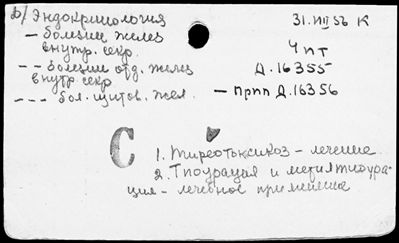 б/ Эндокринология
31.VIII 56 К
– болезни желез
внутр. секр.
Ч пт
– – болезни отд. желез
внутр. секр
Д.16355
– – – бол. щитов. жел. – прпп Д.16356
С
1. Тиреотоксикоз – лечение
2. Тиоурацил и метилтиоура-
цил – лечебное применение